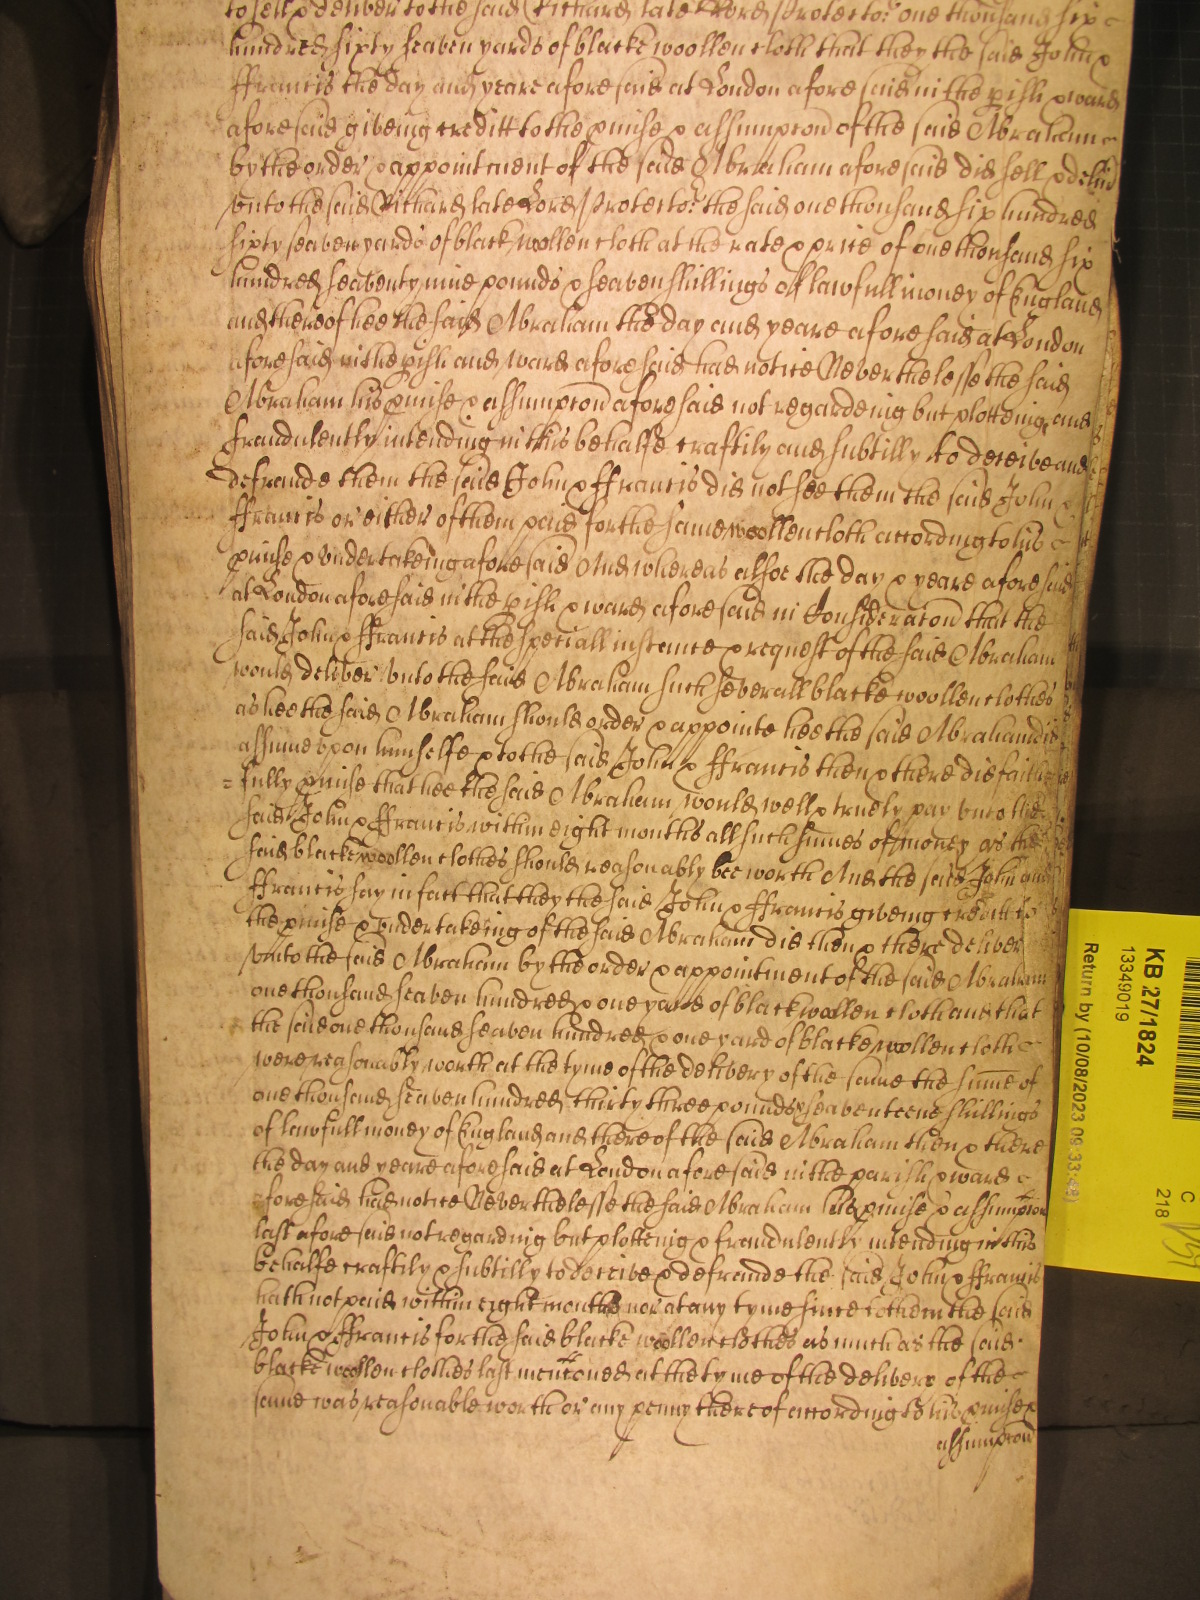 to sell & deliver to the said Richard late Lord Protector one thousand six
hundred sixty seaven yards of blacke woollen cloth that they the said John &
ffrancis the day and yeare aforesaid at London aforesaid in the pish & ward
aforesaid giveing creditt to the pmise & assumpcon of the said Abraham
by the order & appointment of the said Abraham aforesaid did sell & deliver
unto the said Richard late Lord Protector the said one thousand six hundred
sixty seaven yards of black woollen cloth at the rate & price of one thousand six
hundred seaventy nine pounds & seaven shillings of lawfull money of England
and thereof hee the said Abraham the day and yeare aforesaid at London
aforesaid in the pish and ward aforesaid had notice Neverthelesse the said
Abraham his pmise & assumpcon aforesaid not regardeing but plotteing and
fraudulently intending in this behalfe craftily and subtilly to deceive and
defraude them the said John & ffrancis did not hee them the said John &
ffrancis or either of them paid for the same woollen cloth according to his
pmise & undertakeing aforesaid And whereas alsoe the day & yeare aforesaid
at London aforesaid in the pish & ward aforesaid in Consideracon that the
said John & ffrancis at the speciall instance & request of the said Abraham
would deliver unto the said Abraham such severall blacke woollen clothes
as hee the said Abraham should order & appointe hee the said Abraham did
assume upon himselfe & to the said John & ffrancis then & there did faith
= fully pmise that hee the said Abraham would well & truely pay unto the
said John & ffrancis within eight months all such summes of money as the
said blacke woollen clothes should reasonably bee worth And the said John and
ffrancis say in fact that they the said John & ffrancis giveing creditt to
the pmise & undertakeing of the said Abraham did then & there deliver
unto the said Abraham by the order & appointment of the said Abraham
one thousand seaven hundred & one yards of black woollen cloth and that
the said one thousand seaven hundred & one yard of blacke woollen cloth
were reasonably worth at the tyme of the delivery of the same the summe of
one thousand seaven hundred thirty three pounds & seaventeene shillings
of lawfull money of England and thereof the said Abraham then & there
the day and yeare aforesaid at London aforesaid in the parish & ward
aforesaid had notice Neverthelesse the said Abraham his pmise & assumpcon
last aforesaid not regarding but plotteing & fraudulently intending in this
behalfe craftily & subtilly to deceive & defraude the said John & ffrancis
hath not paid within eight months nor at any tyme since to them the said
John & ffrancis for the said blacke woollen clothes as much as the said
blacke woollen clothes last menconed at the tyme of the delivery of the
same was reasonable worth or any penny thereof according to his pmise &
assumpcon
KB 27/1824
13349019
Return by (10/08/2023 09:33:48)
C
218